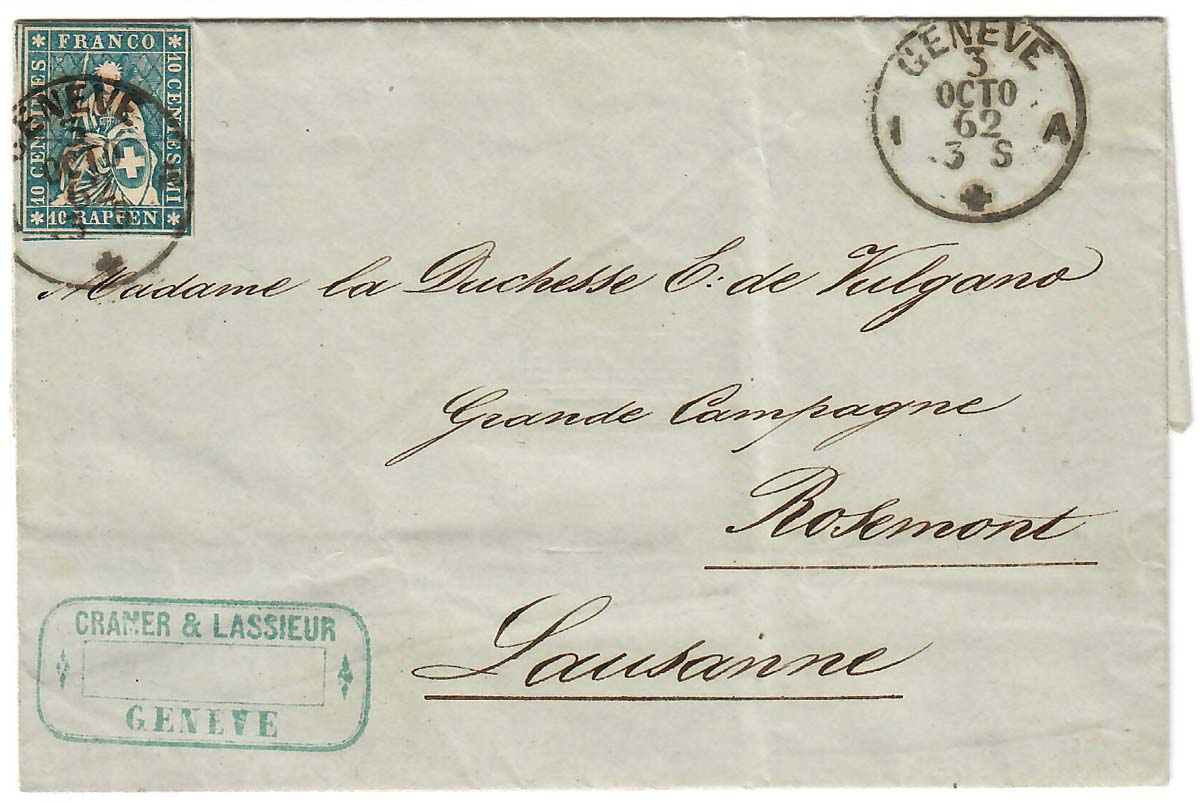 FRANCO
10 CENTIMES
10 CENTESIMI
10 RAPPEN
GENEVE
3
OCTO
62
3 S
GENEVE
3
OCTO
62
1 A
3 S
Madame la Duchesse E: de Vulgano
Grande Campagne
Rosemont
Lausanne
CRAMER & LASSIEUR
GENEVE